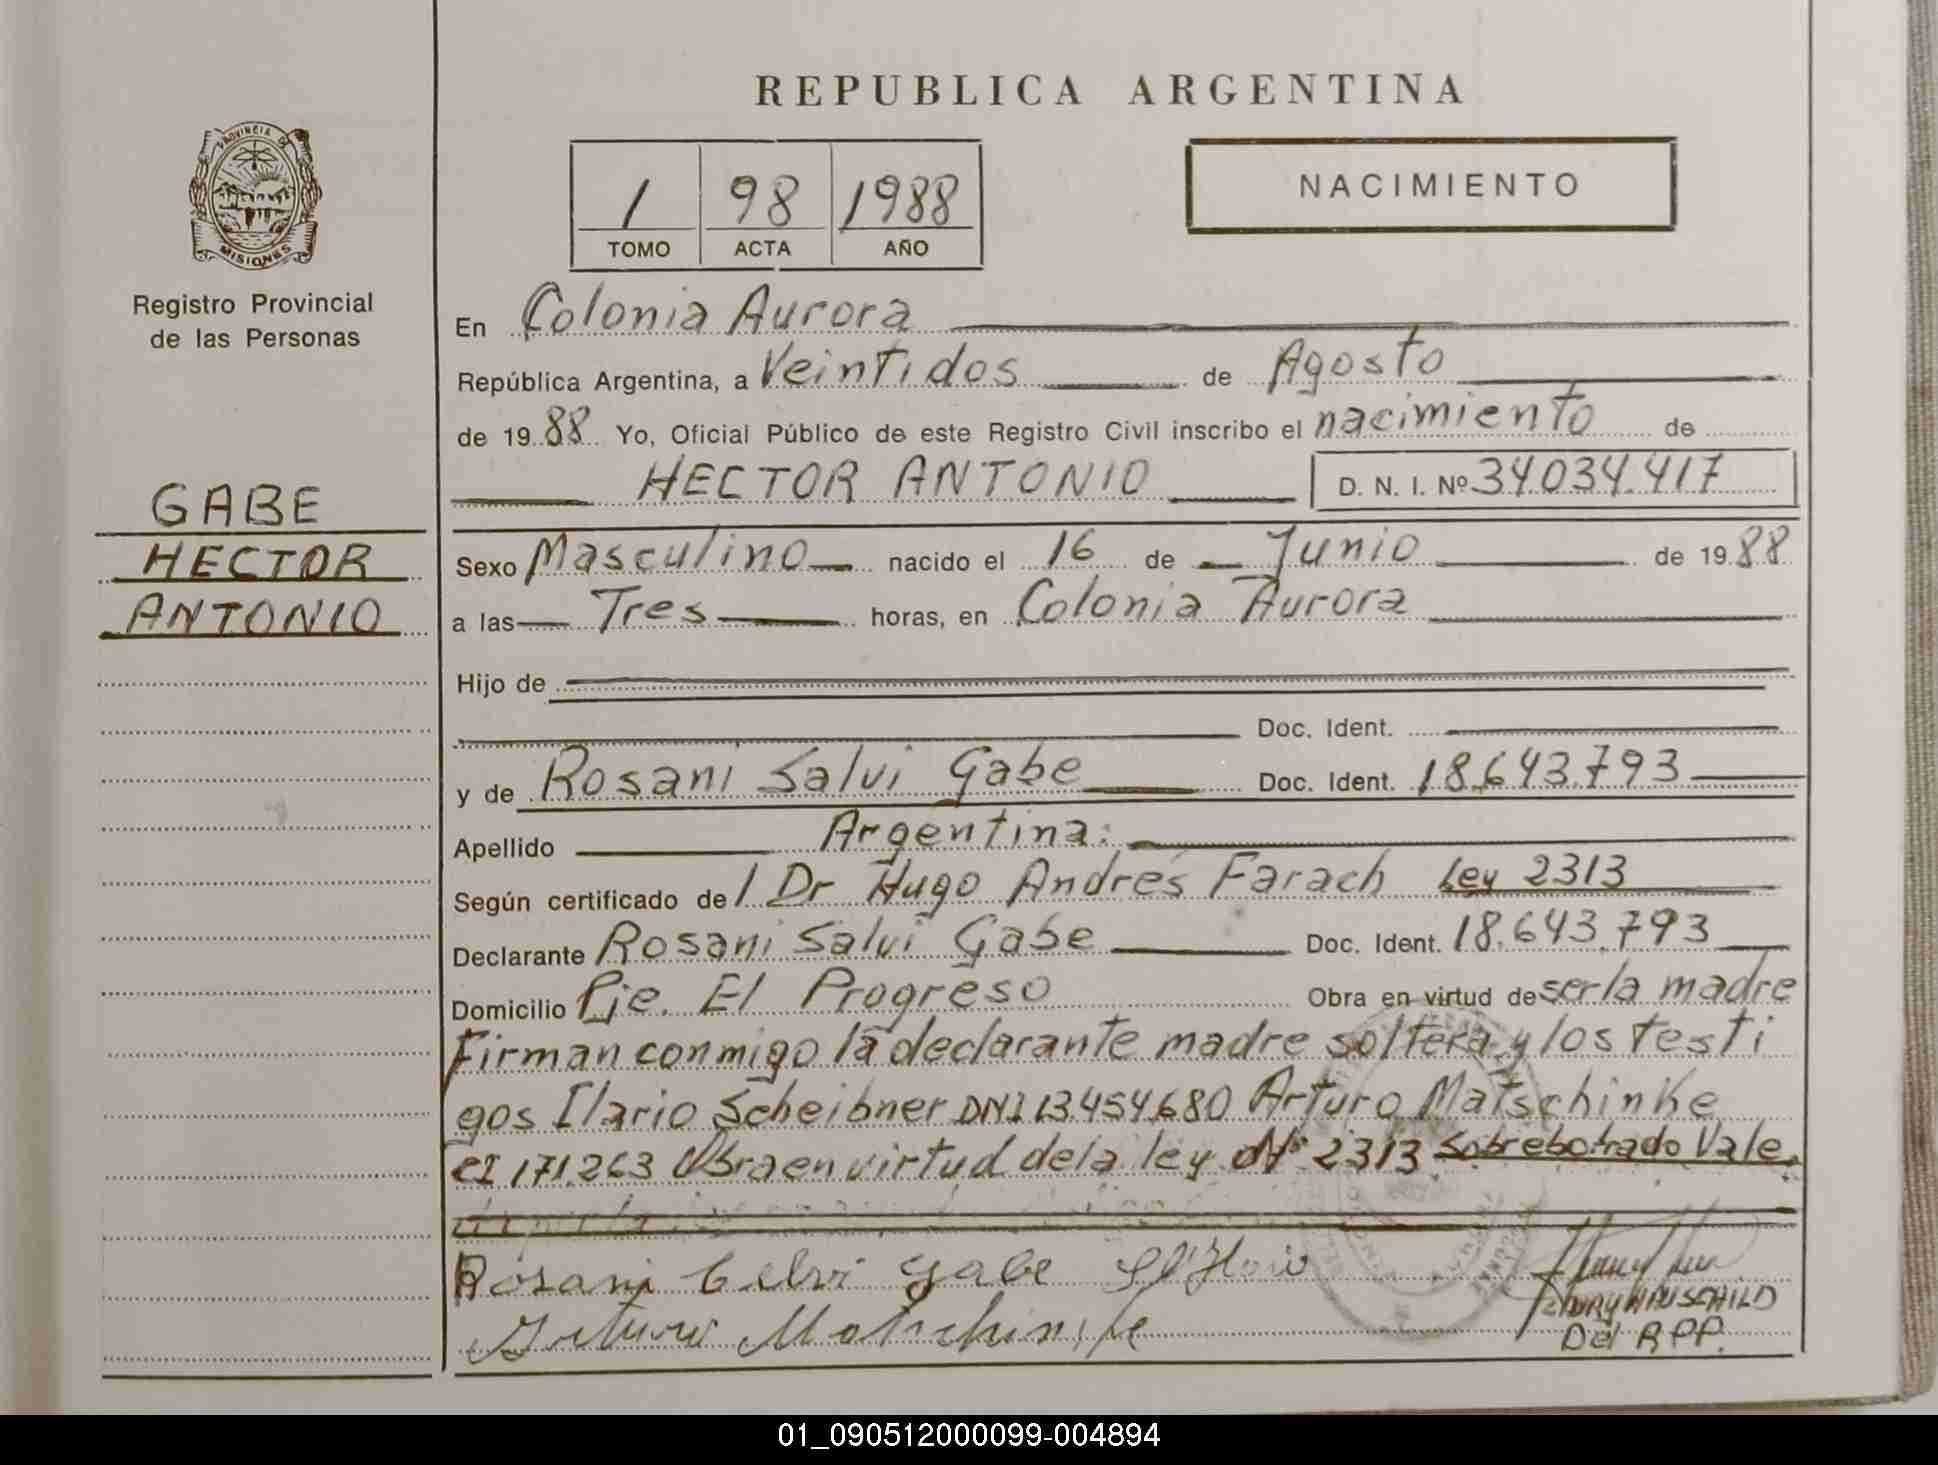 REPUBLICA ARGENTINA
PROVINCIA DE
MISIONES
Registro Provincial
de las Personas
1 98 1988
TOMO ACTA AÑO
NACIMIENTO
En Colonia Aurora
República Argentina, a Veintidos de Agosto
de 19 88 Yo, Oficial Público de este Registro Civil inscribo el nacimiento de
HECTOR ANTONIO D. N. I. Nº 34.034.417
GABE
HECTOR
ANTONIO
Sexo Masculino nacido el 16 de Junio de 19 88
a las Tres horas, en Colonia Aurora
Hijo de
Doc. Ident.
y de Rosani Salvi Gabe Doc. Ident. 18.643.793
Apellido Argentina:
Según certificado de l Dr Hugo Andrés Farach Ley 2313
Declarante Rosani Salvi Gabe Doc. Ident. 18.643.793
Domicilio Pje. El Progreso Obra en virtud de ser la madre
Firman conmigo la declarante madre soltera y los testi
gos Ilario Scheibner DNI 13.454.680 Arturo Matschinke
CI 171.263 Obra en virtud de la ley Nº 2313 Sobreborrado Vale.
Rosani Celvi Gabe
Arturo Matschinke
Del RPP.
01_090512000099-004894